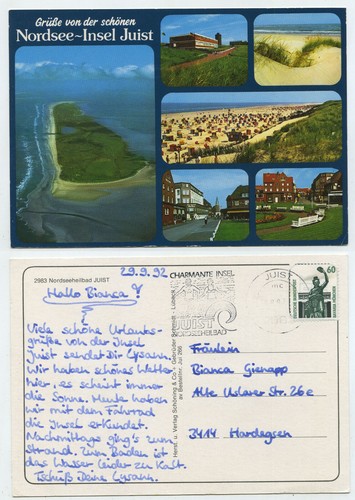 Grüße von der schönen
Nordsee~Insel Juist
2983 Nordseeheilbad JUIST
29.9.92
Hallo Bianca!
Viele schöne Urlaubs-
grüße von der Insel
Juist sendet Dir Gysann.
Wir haben schönes Wetter
hier, es scheint immer
die Sonne. Heute haben
wir mit dem Fahrrad
die Insel erkundet.
Nachmittags ging's zum
Strand. Zum Baden ist
das Wasser leider zu kalt.
Tschüß Deine Gysann.
Herst. u. Verlag Schöning & Co + Gebrüder Schmidt - Lübeck
CHARMANTE INSEL
JUIST
NORDSEEHEILBAD
JUIST
60
Fräulein
Bianca Gienapp
Alte Uslarer Str. 26e
3414 Hardegsen